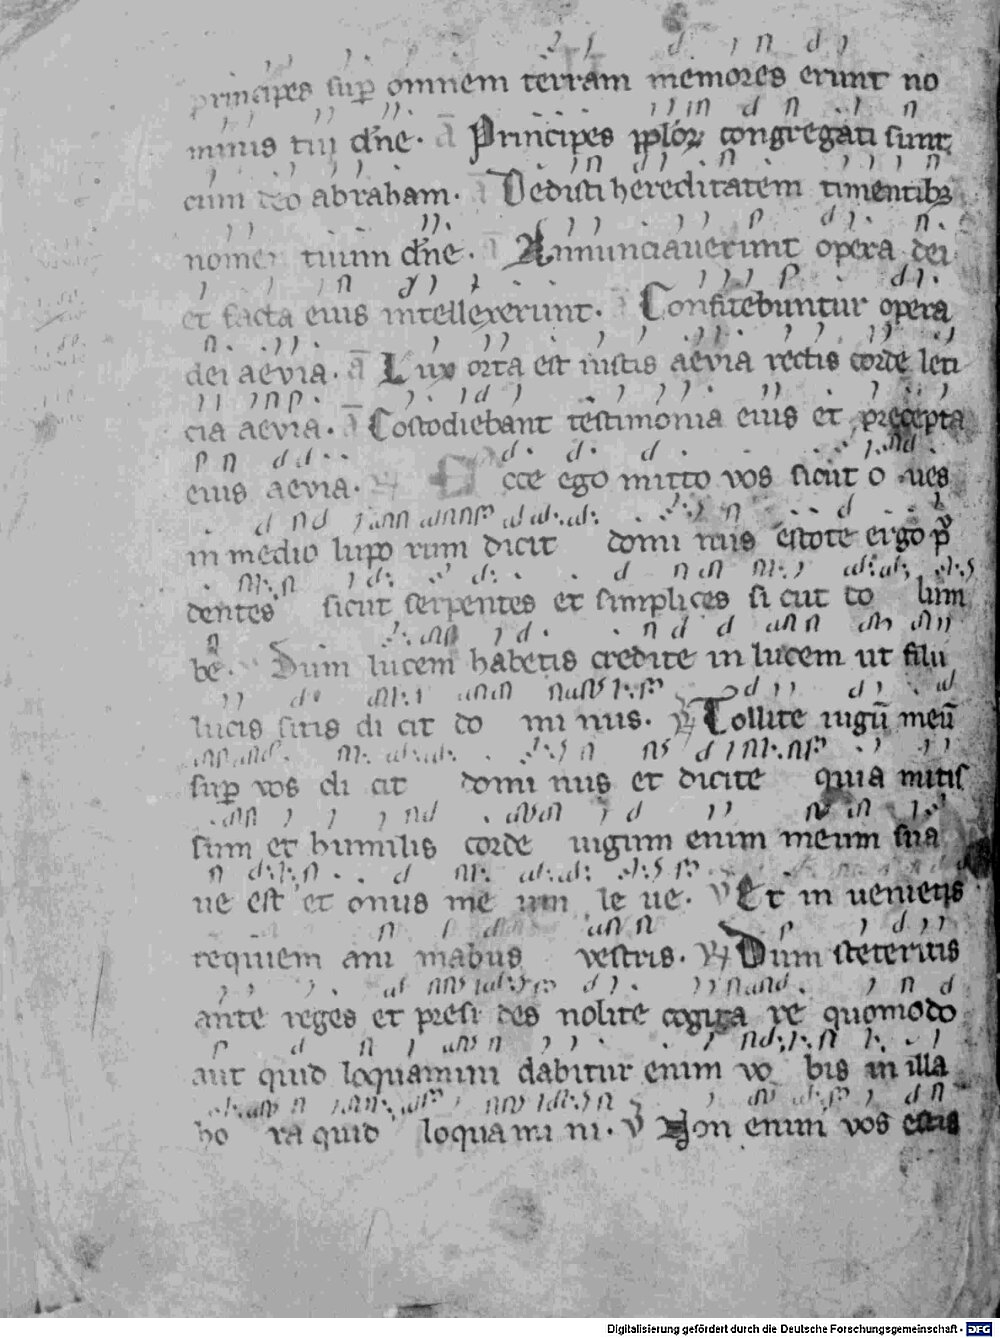 principes sup̲ omnem terram memores erunt no
minis tui dn̄e. a᷎ Principes pp̲lor̄ congregati sunt
cum deo abraham. a᷎ Dedisti hereditatem timentibꝫ
nomen tuum dn̄e. a᷎ Annunciaverunt opera dei
et facta eius intellexerunt. a᷎ Confitebuntur opera
dei aevia. ā Lux orta est iustis aevia rectis corde leti
cia aevia. ā Costodiebant testimonia eius et precepta
eius aevia. R̸ Ecce ego mitto vos sicut o ues
in medio lupo rum dicit domi nus estote ergo p̄
dentes sicut serpentes et simplices si cut co lum
be. Dum lucem habetis credite in lucem ut filii
lucis sitis di cit do mi nus. R̸ Tollite iugū meū
sup̲ vos di cit domi nus et dicite quia mitis
sum et humilis corde iugum enim meum sua
ue est et onus me um le ue. V Et in venietis
requiem ani mabus vestris. R̸ Dum steteritis
ante reges et presi des nolite cogita re quomodo
aut quid loquamini dabitur enim vo bis in illa
ho ra quid loquami ni. V Non enim vos estis
Digitalisierung gefördert durch die Deutsche Forschungsgemeinschaft - DFG